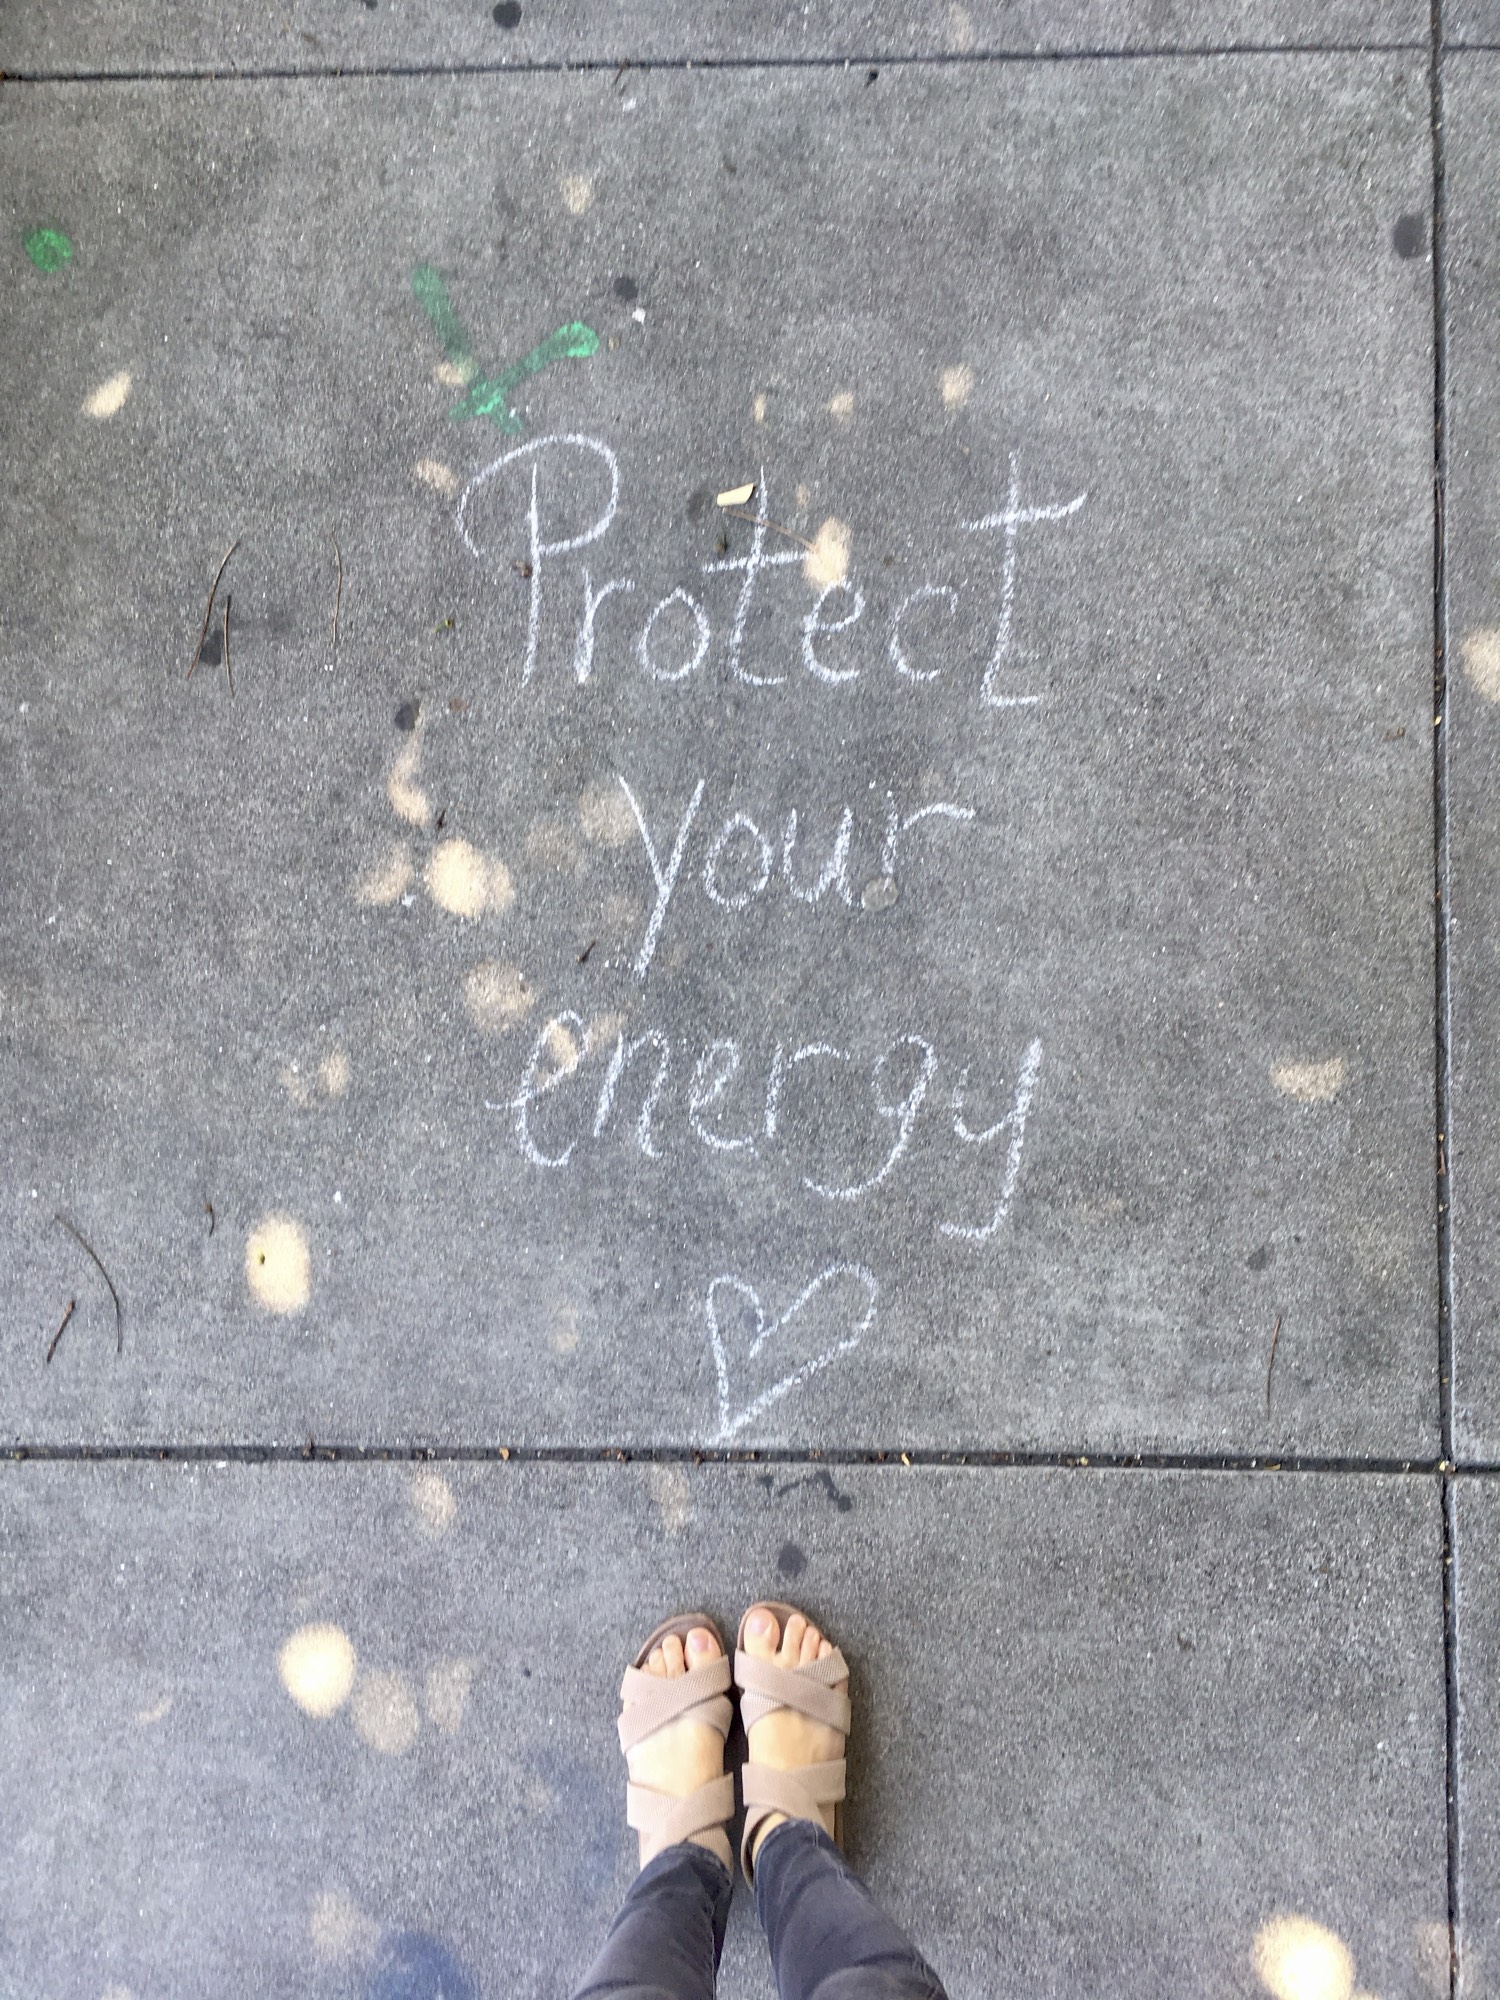 Protect
your
energy